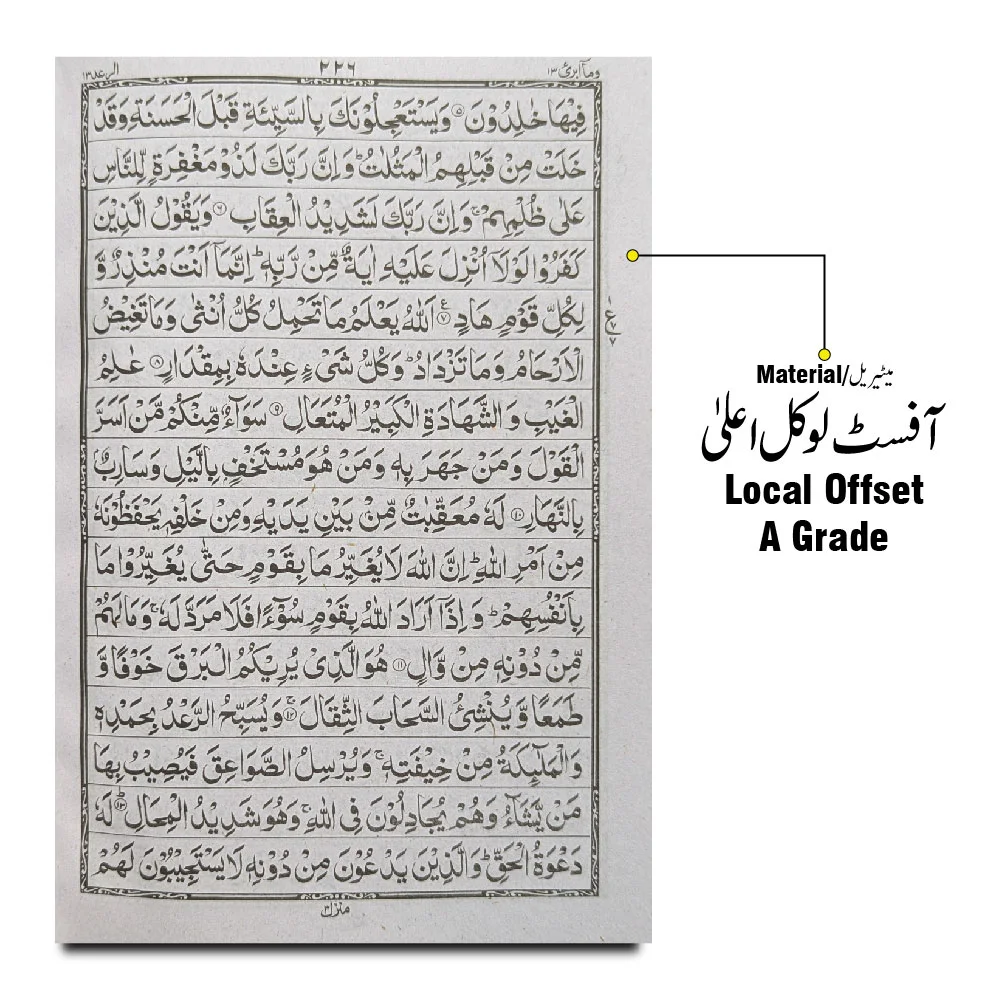 وما ابرئ ١٣
٢٢٦
الرعد ١٣
فِيْهَا خٰلِدُوْنَ ۝٥ وَيَسْتَعْجِلُوْنَكَ بِالسَّيِّئَةِ قَبْلَ الْحَسَنَةِ وَقَدْ
خَلَتْ مِنْ قَبْلِهِمُ الْمَثُلٰتُ ؕ وَاِنَّ رَبَّكَ لَذُوْ مَغْفِرَةٍ لِّلنَّاسِ
عَلٰى ظُلْمِهِمْ ۚ وَاِنَّ رَبَّكَ لَشَدِيْدُ الْعِقَابِ ۝٦ وَيَقُوْلُ الَّذِيْنَ
كَفَرُوْا لَوْلَاۤ اُنْزِلَ عَلَيْهِ اٰيَةٌ مِّنْ رَّبِّهٖ ؕ اِنَّمَاۤ اَنْتَ مُنْذِرٌ وَّ
لِكُلِّ قَوْمٍ هَادٍ ۝٧ اَللّٰهُ يَعْلَمُ مَا تَحْمِلُ كُلُّ اُنْثٰى وَمَا تَغِيْضُ
الْاَرْحَامُ وَمَا تَزْدَادُ ؕ وَكُلُّ شَيْءٍ عِنْدَهٗ بِمِقْدَارٍ ۝٨ عٰلِمُ
الْغَيْبِ وَالشَّهَادَةِ الْكَبِيْرُ الْمُتَعَالِ ۝٩ سَوَآءٌ مِّنْكُمْ مَّنْ اَسَرَّ
الْقَوْلَ وَمَنْ جَهَرَ بِهٖ وَمَنْ هُوَ مُسْتَخْفٍۭ بِالَّيْلِ وَسَارِبٌۢ
بِالنَّهَارِ ۝١٠ لَهٗ مُعَقِّبٰتٌ مِّنْۢ بَيْنِ يَدَيْهِ وَمِنْ خَلْفِهٖ يَحْفَظُوْنَهٗ
مِنْ اَمْرِ اللّٰهِ ؕ اِنَّ اللّٰهَ لَا يُغَيِّرُ مَا بِقَوْمٍ حَتّٰى يُغَيِّرُوْا مَا
بِاَنْفُسِهِمْ ؕ وَاِذَاۤ اَرَادَ اللّٰهُ بِقَوْمٍ سُوْٓءًا فَلَا مَرَدَّ لَهٗ ۚ وَمَا لَهُمْ
مِّنْ دُوْنِهٖ مِنْ وَّالٍ ۝١١ هُوَ الَّذِيْ يُرِيْكُمُ الْبَرْقَ خَوْفًا وَّ
طَمَعًا وَّيُنْشِئُ السَّحَابَ الثِّقَالَ ۝١٢ ۚ وَيُسَبِّحُ الرَّعْدُ بِحَمْدِهٖ
وَالْمَلٰٓئِكَةُ مِنْ خِيْفَتِهٖ ۚ وَيُرْسِلُ الصَّوَاعِقَ فَيُصِيْبُ بِهَا
مَنْ يَّشَآءُ وَهُمْ يُجَادِلُوْنَ فِى اللّٰهِ ۚ وَهُوَ شَدِيْدُ الْمِحَالِ ۝١٣ ؕ لَهٗ
دَعْوَةُ الْحَقِّ ؕ وَالَّذِيْنَ يَدْعُوْنَ مِنْ دُوْنِهٖ لَا يَسْتَجِيْبُوْنَ لَهُمْ
منزل ٣
Material/میٹیریل
آفسٹ لوکل اعلیٰ
Local Offset
A Grade